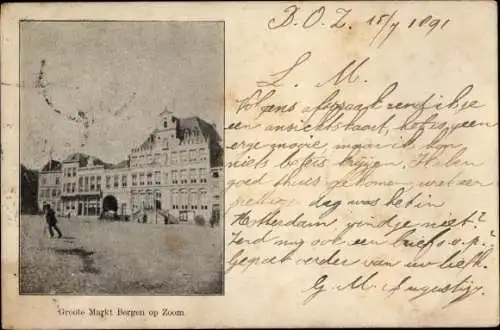 B.O.Z. 15/7 1891
L. M.
Volgens afspraak zend ik je
een ansichtkaart, het is geen
erge mooie, maar ik kon
niets beters krijgen.
goed thuis gekomen,
dag was het in
Rotterdam vindt je niet?
Zend mij ook een briefk. s.v.p.?
Gegroet verder van uw liefh.
G. M. Augustijn
Groote Markt Bergen op Zoom